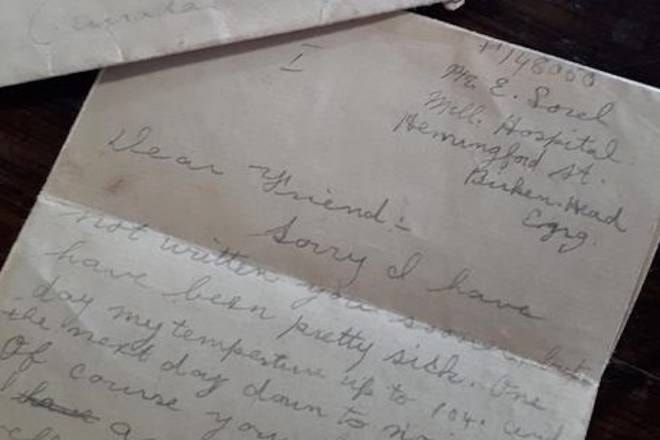 Canada
#148050
I
Pte. E. Sorel
Mill. Hospital
Hemingford St.
Birken-Head
Eng.
Dear Friend:-
Sorry I have
not written you sooner, but
have been pretty sick. One
day my temperture up to 104° and
the next day down to
Of course you
I have